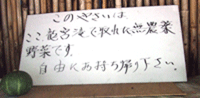 このやさいは、
ここ竜宮滝で取れた無農薬
野菜です。
自由にお持ち帰り下さい。